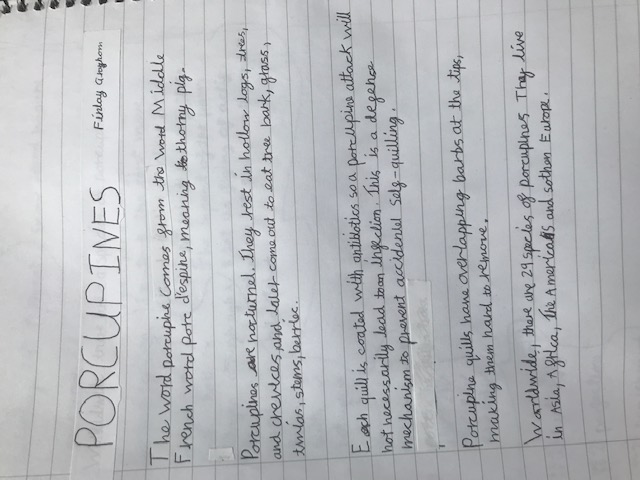 PORCUPINES
The word porcupine comes from the word Middle
French word porc d'espine, meaning thorny pig.
Porcupines are nocturnel. They rest in hollow logs, trees,
and crevices, and later come out to eat tree bark, grass,
twias, stems, berrise.
Each quill is coated with antibiotics so a porcupine attack will
not necessarily lead toan infection. This is a defense
mechanism to prevent accidental self-quilling.
Porcupine quills have overlapping barbs at the tips,
making them hard to remove.
Worldwide, there are 29 species of porcupines. They live
in Asia, Africa, The Americans and sothern Europe.